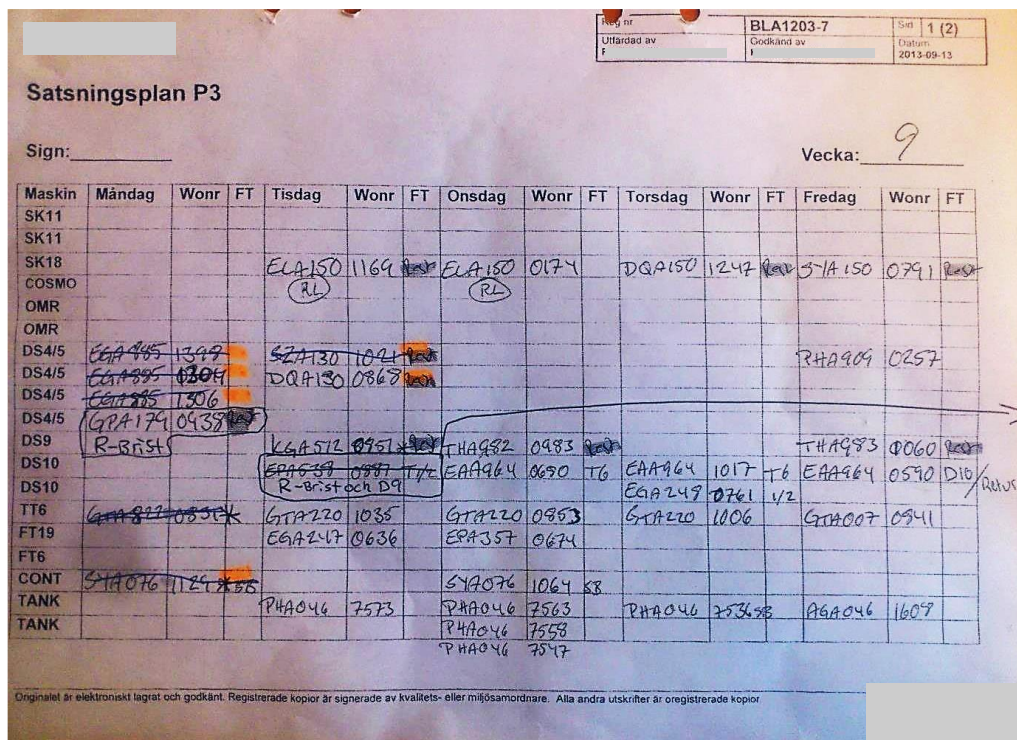 Reg nr BLA1203-7 Sid 1 (2)
Utfärdad av Godkänd av Datum
2013-09-13
Satsningsplan P3
Sign: Vecka: 9
Maskin Måndag Wonr FT Tisdag Wonr FT Onsdag Wonr FT Torsdag Wonr FT Fredag Wonr FT
SK11
SK11
SK18 ELA150 1169 Rest ELA150 0174 DQA150 1247 Rest SYA150 0791 Rest
COSMO RL RL
OMR
OMR
DS4/5 EGA885 1398 SZA130 1021 Rest PHA909 0257
DS4/5 EGA885 0304 DQA130 0868 Rest
DS4/5 EGA885 1306
DS4/5 GPA179 0438 Rest
DS9 R-Brist KGA512 0951 Rest THA982 0983 Rest THA983 0060 Rest
DS10 EPA539 0887 T/2 EAA964 0690 T6 EAA964 1017 T6 EAA964 0590 D10/Retur
DS10 R-Brist och D9 EGA248 0761 1/2
TT6 GTA822 0831 GTA220 1035 GTA220 0853 GTA220 1006 GTA007 0841
FT19 EGA247 0636 EPA357 0674
FT6
CONT SYA076 1129 SB SYA076 1064 SB
TANK PHA046 7573 PHA046 7563 PHA046 7536 SB AGA046 1608
TANK PHA046 7558
PHA046 7547
Originalet är elektroniskt lagrat och godkänt. Registrerade kopior är signerade av kvalitets- eller miljösamordnare. Alla andra utskrifter är oregistrerade kopior